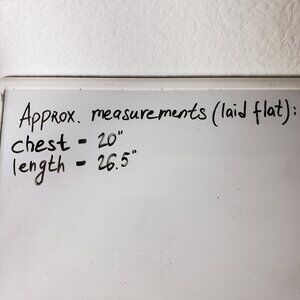 Approx. measurements (laid flat):
chest - 20"
length - 26.5"